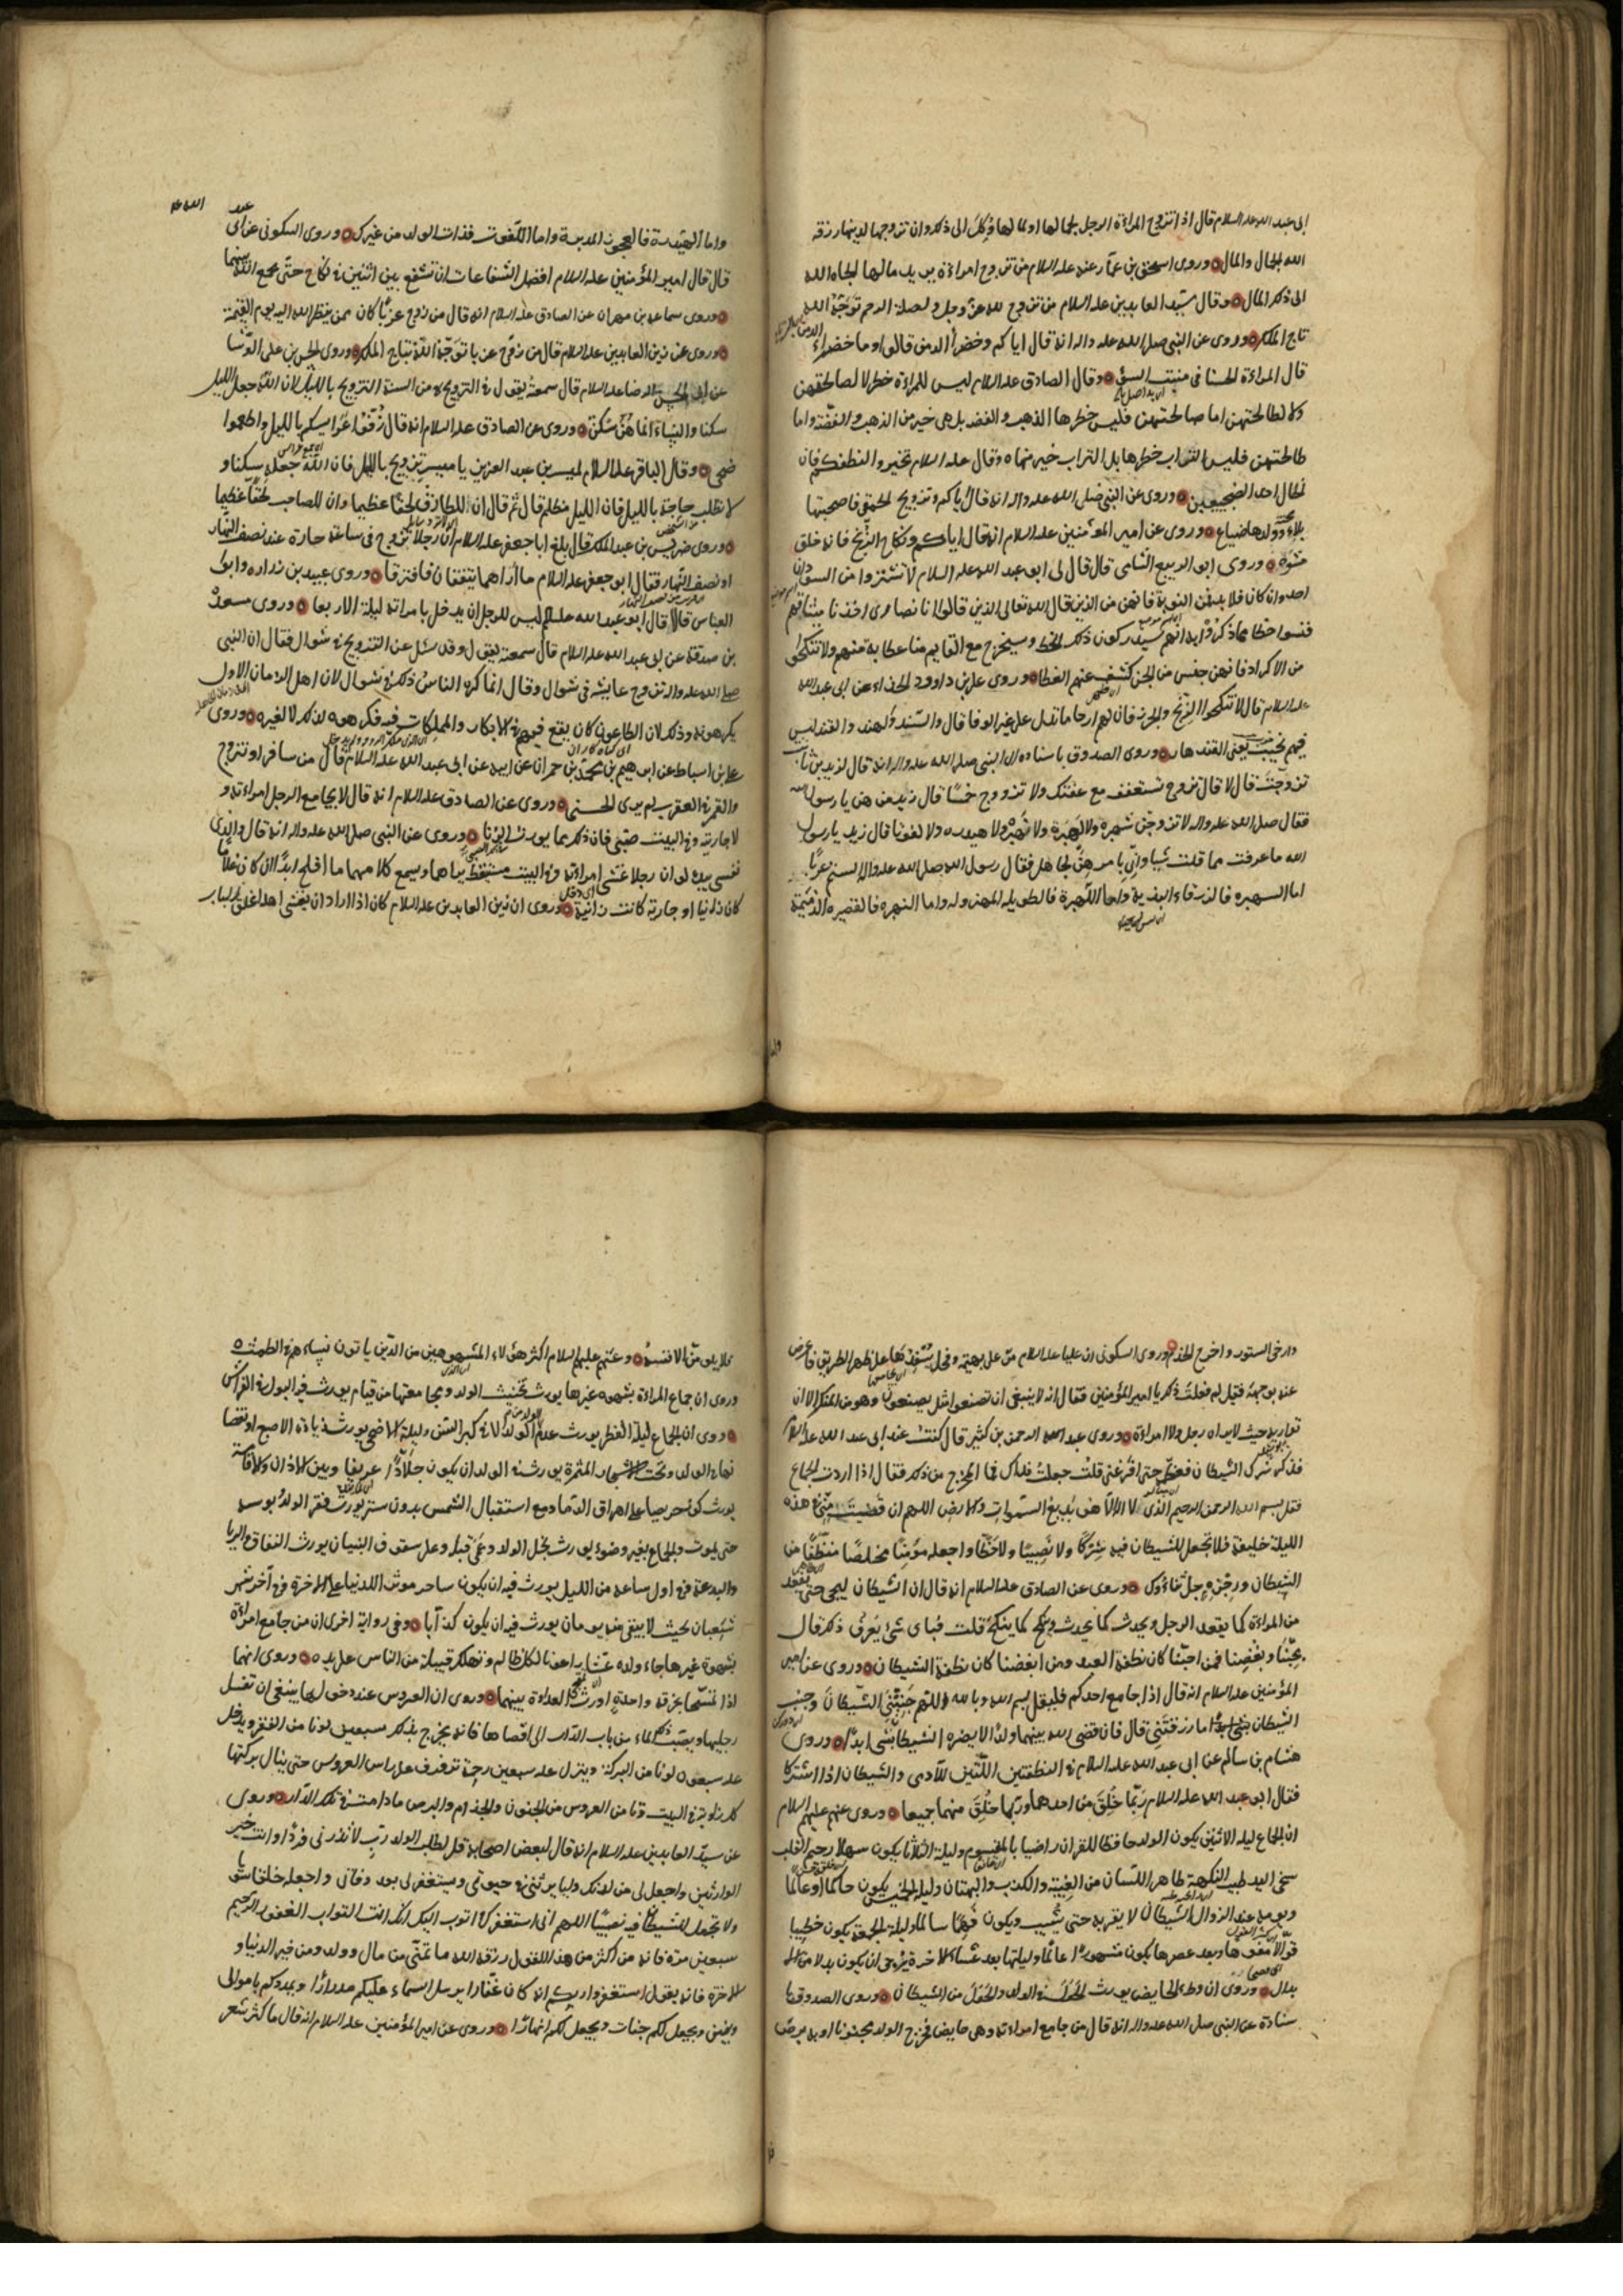 ابى عبد الله عليه السلام قال اذا تزوج المراءة الرجل لجمالها او لمالها وُكِلَ الى ذلك وان تزوجها لدينها رزقه
الله الجمال والمال وروى اسحق بن عمار عنه عليه السلام من تزوج امراءة يريد مالها الجاه الله
الى ذلك المال وقال سيد العابدين عليه السلام من تزوج لله عز وجل ولصلة الرحم توّجه الله
تاج الملك وروى عن النبى صلى الله عليه واله انه قال اياكم وخضراء الدمن قالوا وما خضراء الدمن
قال المراءة الحسنا فى منبت السوء وقال الصادق عليه السلام ليس للمراءة خطر لا لصالحتهن
ولا لطالحتهن اما صالحتهن فليس خطرها الذهب والفضه بل هى خير من الذهب والفضّة واما
طالحتهن فليس التراب خطرها بل التراب خير منها وقال عليه السلام تخيروا لنطفكم فان
الخال احد الضجيعين وروى عن النبى صلى الله عليه واله انه قال اياكم وتزويج الحمقى فان صحبتها
بلاء وولدها ضياع وروى عن امير المؤمنين عليه السلام انه قال اياكم ونكاح الزنج فانه خلق
مشوّه وروى ابو الربيع الشامى قال قال لى ابو عبد الله عليه السلام لا تشتروا من السودان
احدا وان كان فلا بد فمن النوبة فانهن من الذين قال الله تعالى الذين قالوا انا نصارى اخذنا ميثاقهم
فنسوا حظا مما ذكروا به انهم سيدركون ذلك الحظ وسيخرج مع القايم منا عصابة منهم ولا تنكحوا
من الاكراد فانهن جنس من الجن كشف عنهم الغطا وروى على بن داوود الحذاء عن ابى عبد الله
عليه السلام قال لا تنكحوا الزنج والخزر فان لهم ارحاما تدل على غير الوفا قال والسند والهند والقند ليس
فيهم نجيب يعنى القندهار وروى الصدوق باسناده الى النبى صلى الله عليه واله انه قال لزيد بن ثابت
تزوّجتَ قال لا قال تزوج تستعفف مع عفتك ولا تزووج خمسًا قال زيد من هن يا رسول الله
فقال صلى الله عليه واله لا تزوجن شهبرة ولا لهبرة ولا نهبرة ولا هيدره ولا لفوتا قال زيد يا رسول
الله ما عرفت مما قلت شيا وانى بامرهن لجاهل فقال رسول الله صلى الله عليه واله الستم عربًا
اما الشهبره فالزرقاء البذية واما اللهبرة فالطويله المهزوله واما النهبره فالقصيره الذميمة
واما الهيدرة فالعجوز المدبرة واما اللفوت فذات الولد من غيرك وروى السكونى عن ابى عبد الله ع
قال قال امير المؤمنين عليه السلام افضل الشفاعات ان تشفع بين اثنين فى نكاح حتى يجمع الله بينهما
وروى سماعه بن مهران عن الصادق عليه السلام انه قال من زوج عزبًا كان ممن ينظر الله اليه يوم القيمة
وروى عن زين العابدين عليه السلام قال من زوّج عزبا توّجه الله بتاج الملك وروى الحسن بن على الوشا
عن ابى الحسن الرضا عليه السلام قال سمعته يقول فى التزويج من السنة التزويج بالليل لان الله جعل الليل
سكنا والنساء انما هنّ سكن وروى عن الصادق عليه السلام انه قال زفّوا عرايسكم بالليل واطعموا
ضحى وقال الباقر عليه السلام لميسر بن عبد العزيز يا ميسر تزوج بالليل فان الله جعله سكنا و
لا تطلب حاجة بالليل فان الليل مظلم قال ثم قال ان للطارق لحقا عظيما وان للصاحب لحقّا عظيما
وروى ضريس بن عبد الملك قال بلغ ابا جعفر عليه السلام ان رجلا تزوج فى ساعة حارة عند نصف النهار
فقال ابو جعفر عليه السلام ما اراهما يتفقان فافترقا وروى عبيد بن زراره وابو
العباس قالا قال ابو عبد الله عليه السلام ليس للرجل ان يدخل بامراته ليلة الاربعا وروى مسعدة
بن صدقة عن ابى عبد الله عليه السلام قال سمعته يقول وقد سئل عن التزويج فى شوال فقال ان النبى
صلى الله عليه واله تزوج عايشه فى شوال وقال انما كره الناس ذلك فى شوال لان اهل الزمان الاول
يكرهونه وذلك لان الطاعون كان يقع فيهم فى الابكار والمملكات فيه فكرهوه لذلك لا لغيره وروى
على بن اسباط عن ابرهيم بن محمد بن حمران عن ابيه عن ابى عبد الله عليه السلام قال من سافر او تزوج
والقمر فى العقرب لم يرى الحسنى وروى عن الصادق عليه السلام انه قال لا يجامع الرجل امراءته و
لا جاريته وفى البيت صبّى فان ذلك مما يورث الزنا وروى عن النبى صلى الله عليه واله انه قال والذى
نفسى بيده لو ان رجلا غشى امراءته وفى البيت مستيقظ يراهما ويسمع كلامهما ما افلح ابدًا ان كان غلامًا
كان زانيا او جارية كانت زانية وروى ان زين العابدين عليه السلام كان اذا اراد ان يغشى اهله اغلق الباب
وارخى الستور واخرج الخدم وروى السكونى ان عليا عليه السلام مرّ على بهيمة وفحل يسفدها على ظهر الطريق فاعرض
عنه بوجهه فقيل له فعلت ذلك يا امير المؤمنين فقال انه لا ينبغى ان تصنعوا مثل ما يصنعون وهو من المنكر الا ان
تواريه حيث لا يراه رجل ولا امراءة وروى عبد الرحمن بن كثير قال كنت عند ابى عبد الله عليه السلام
فذكر شرك الشيطان فعظّمه حتى افزعنى قلت جعلت فداك فما المخرج من ذلك فقال اذا اردت الجماع
فقل بسم الله الرحمن الرحيم الذى لا اله الا هو بديع السموات والارض اللهم ان قضيت منى فى هذه
الليلة خليفة فلا تجعل للشيطان فيه شركا ولا نصيبا ولا حظا واجعله مؤمنًا مخلصًا منظفًا من
الشيطان ورجزه جل ثناؤك وروى عن الصادق عليه السلام انه قال ان الشيطان ليجى حتى يقعد
من المراءة كما يقعد الرجل ويحدث كما يحدث وينكح كما ينكح قلت فباى شئ يعرف ذلك قال
بحبنا وبغضنا فمن احبّنا كان نطفة العبد ومن ابغضنا كان نطفة الشيطان وروى عن امير
المؤمنين عليه السلام انه قال اذا جامع احدكم فليقل بسم الله وبالله اللهم جنبنى الشيطان وجنب
الشيطان ما رزقتنى قال فان قضى الله بينهما ولدا لا يضره الشيطان بشى ابدًا وروى
هشام بن سالم عن ابى عبد الله عليه السلام فى النطفتين اللتين للآدمى والشيطان اذا اشتركا
فقال ابو عبد الله عليه السلام ربما خُلِقَ من احدهما وربما خلق منهما جميعا وروى عنهم عليهم السلام
ان الجماع ليلة الاثنين يكون الولد حافظا للقران راضيا بالمقسوم وليلة الثلاثا يكون سهلا رحيم القلب
سخى اليد طيب النكهة طاهر اللسان من الغيبة والكذب والبهتان وليلة الخميس يكون حاكما او عالما
ويومه عند الزوال الشيطان لا يقربه حتى يشيب ويكون فهمًا سالما وليلة الجمعة يكون خطيبا
قوّالا مفوّها وبعد عصرها يكون مشهورًا عالمًا وليلتها بعد عشاء الاخرة يرجى ان يكون بدلا من الا
بدال وروى ان وطى الحايض يورث الحول فى الولد والحول من الشيطان وروى الصدوق با
سناده عن النبى صلى الله عليه واله انه قال من جامع امراءته وهى حايض فخرج الولد مجذوما او به برص
فلا يلومنّ الا نفسه وعنهم عليهم السلام اكثر هؤلاء المشوهين من الذين ياتون نساءهم فى الطمث
وروى ان جماع المراءة بشهوه غيرها يورث تخنيث الولد ومجامعتها من قيام يورث فيه البول فى الفراش
وروى ان الجماع ليلة الفطر يورث عدم الولد الا فى كبر السن وليلة الاضحى يورث زيادة الاصبع او نقصا
نها فى الولد وتحت الاشجار المثمرة يورث فى الولد ان يكون جلادًّا او عريفا وبين الاذان والاقامة
يورث كونه حريصا على اهراق الدماء ومع استقبال الشمس بدون ستر يورث فقر الولد وبوسه
حتى يموت والجماع بغير وضوء يورث بخل الولد وعمى قلبه وعلى سقوف البنيان يورث النفاق والريا
والبدعة وفى اول ساعه من الليل يورث فيه ان يكون ساحر موثر الدنيا على الاخرة وفى آخر شهر
شعبان بحيث لا يبقى منه يومان يورث فيه ان يكون كذابا وفى رواية اخرى ان من جامع امراءة
بشهوة غيرها جاء ولده عشارا عونا لكل ظالم وتهلك قبيلة من الناس على يده وروى انهما
اذا تمسّحا بخرقه واحدة اورث العداوة بينهما وروى ان العروس عند دخولها ينبغى ان تغسل
رجليها ويصب ذلك الماء من باب الدار الى اقصاها فانه يخرج بذلك سبعين لونا من الفقر ويدخل
عليه سبعون لونا من البركة وينزل عليه سبعين رحمة ترفرف على راس العروس حتى ينال بركتها
كل زاوية فى البيت وتامن العروس من الجنون والجذام والبرص ما دامت فى تلك الدار وروى
عن سيد العابدين عليه السلام انه قال لبعض اصحابه قل لطلب الولد رب لا تذرنى فردًا وانت خير
الوارثين واجعل لى من لدنك وليا يرثنى فى حيوتى ويستغفر لى بعد وفاتى واجعله خلقا سويا
ولا تجعل للشيطان فيه نصيبًا اللهم انى استغفرك واتوب اليك انك انت التواب الغفور الرحيم
سبعين مرة فانه من اكثر من هذا القول رزقه الله ما تمنى من مال وولد ومن خير الدنيا و
الاخرة فانه يقول استغفروا ربكم انه كان غفّارا يرسل السماء عليكم مدرارًا ويمددكم باموال
وبنين ويجعل لكم جنات ويجعل لكم انهارًا وروى عن امير المؤمنين عليه السلام انه قال ما كثر شعر